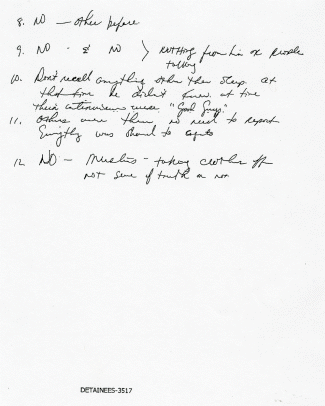 8. NO — other before
9. NO - & NO > nothing from him or people
talking
10. Don't recall anything other than sleep. At
that time he didn't know at time
their interviewers were "Good Guys."
11. Others were there no need to report
Everything was shared to agents
12. NO - Muslims - taking clothes off
not sure if truth or not
DETAINEES-3517